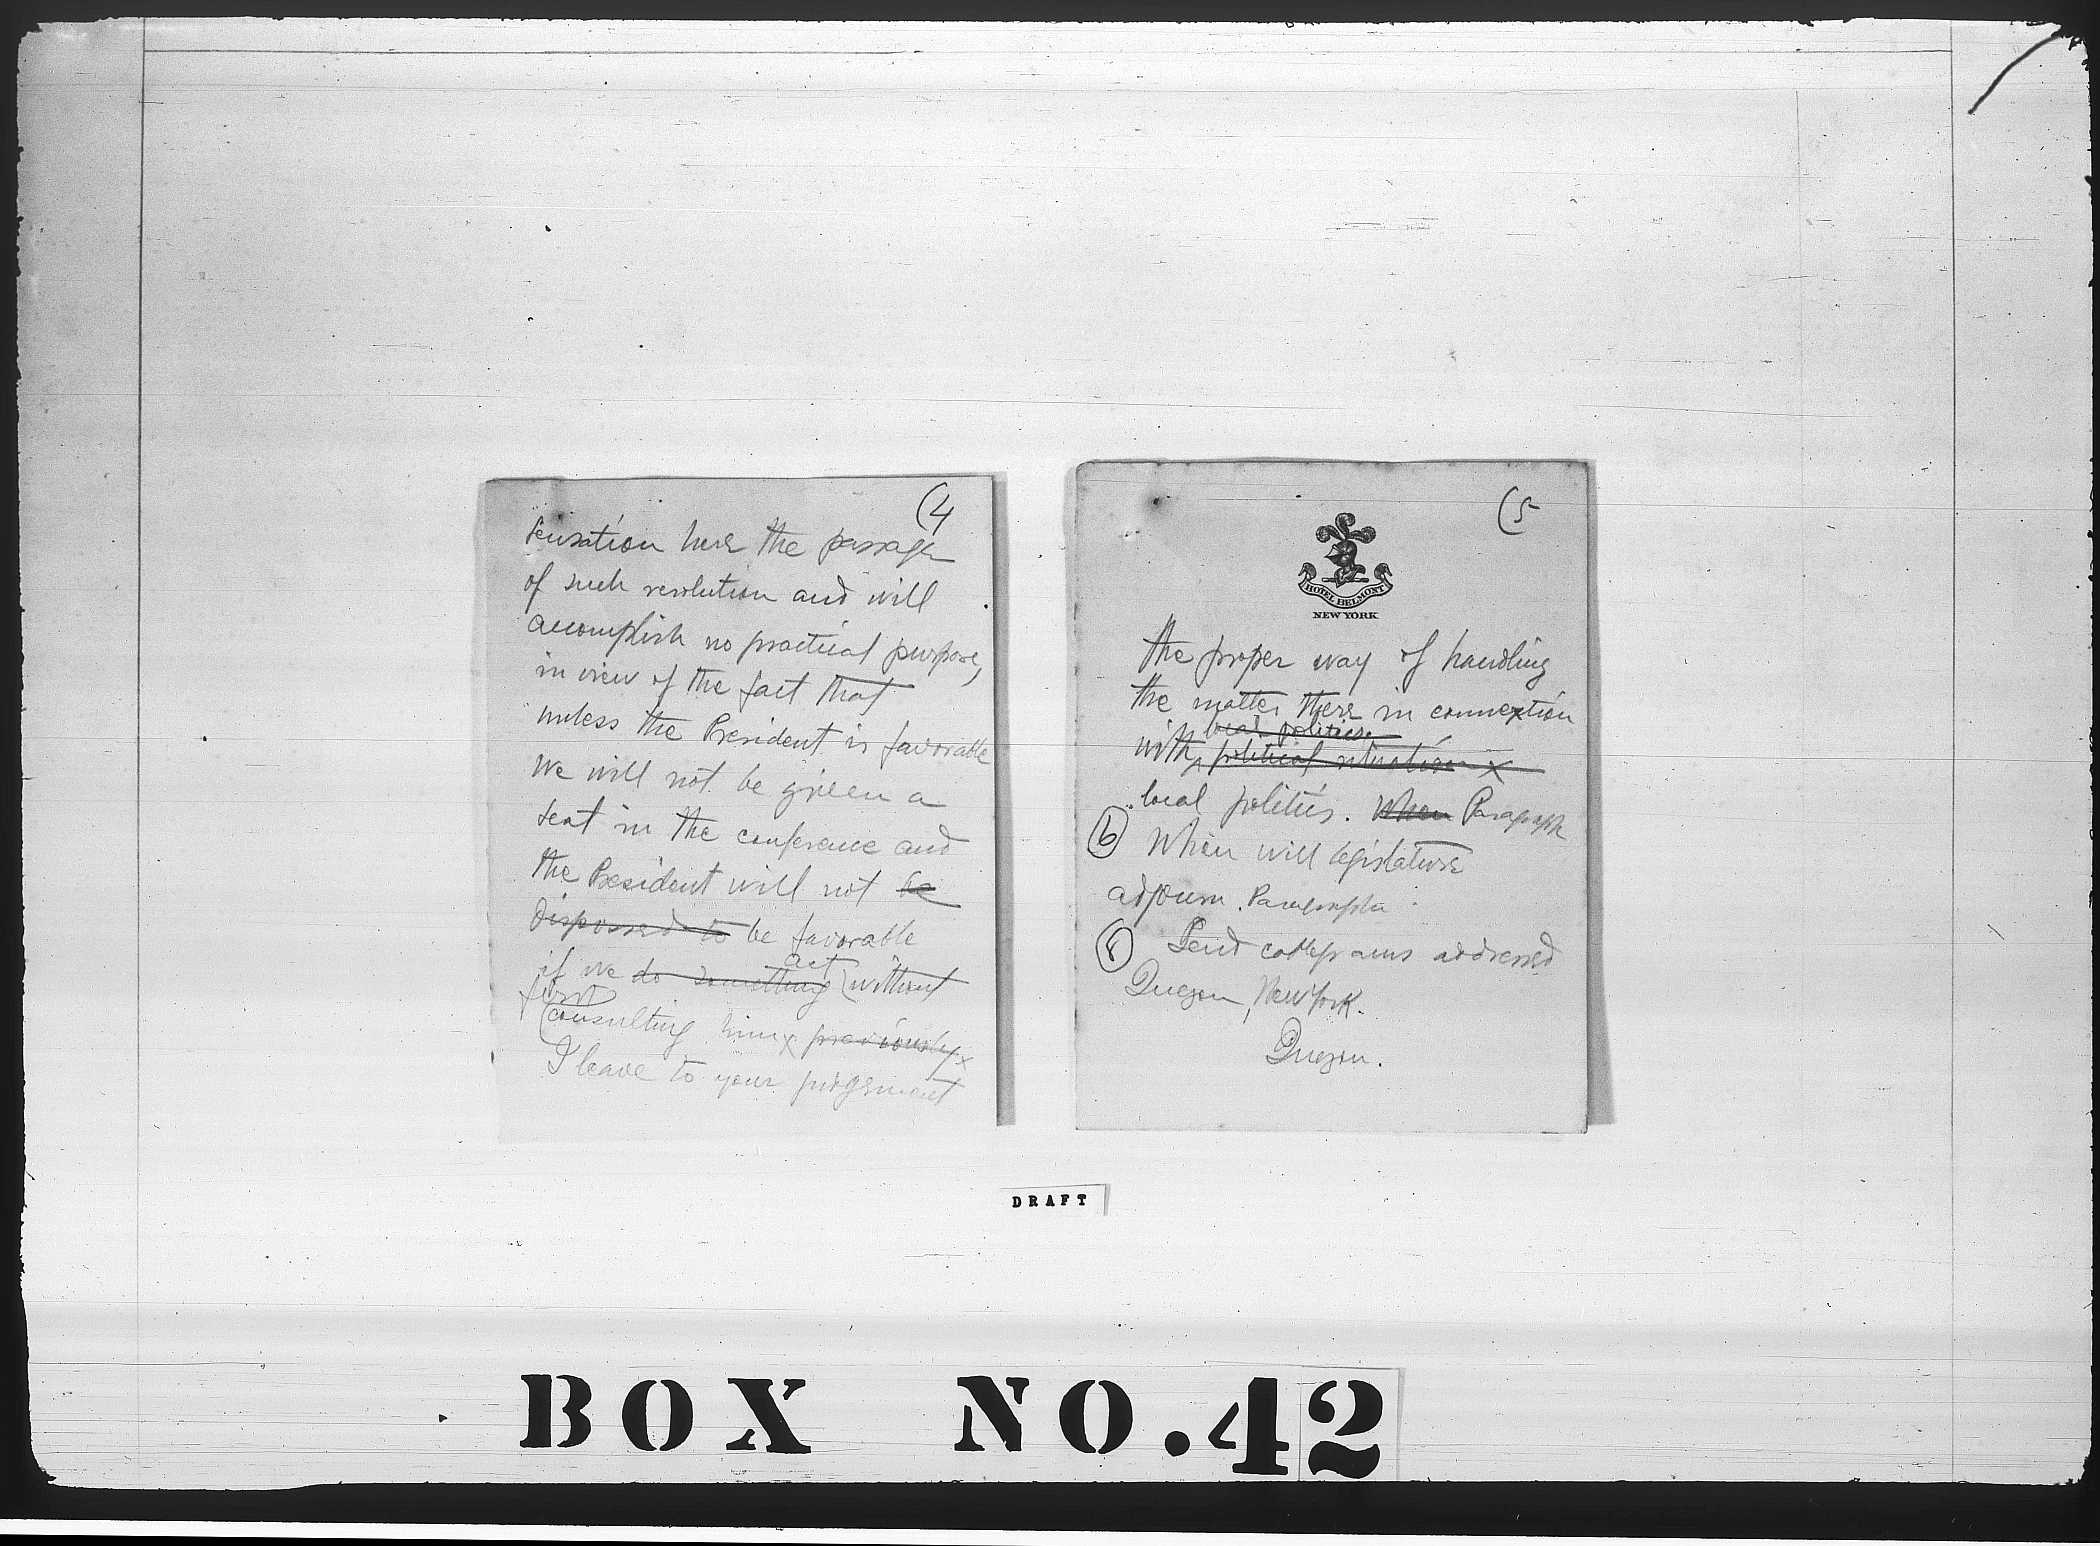 (4
sensation here the passage
of such resolution and will
accomplish no practical purpose,
in view of the fact that
unless the President is favorable
we will not be given a
seat in the conference and
the President will not be
disposed to be favorable
act
if we do something without
first
consulting him x previously x
I leave to your judgement
(5
HOTEL BELMONT
NEW YORK
the proper way of handling
the matter there in connextion
local politics
with political situation x
local politics. When Paragraph
(6) When will legislature
adjourn. Paragraph
Send cablegrams addressed
Quezon, New York.
Quezon.
DRAFT
BOX NO. 42